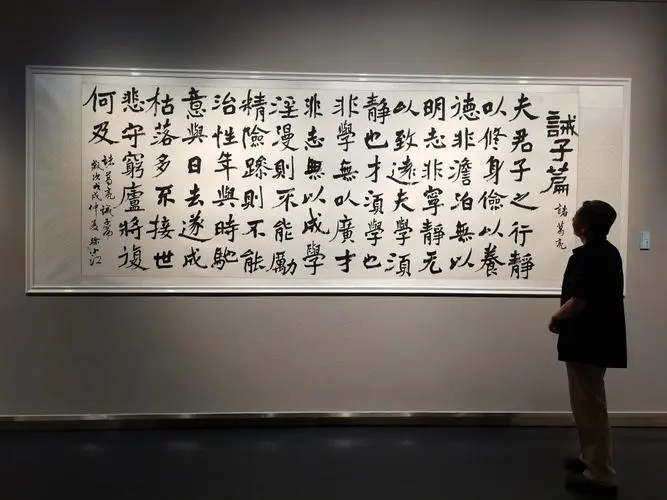 誡子篇
諸葛亮
夫君子之行靜
以修身儉以養
德非澹泊無以
明志非寧靜无
以致遠夫學須
靜也才須學也
非學無以廣才
非志無以成學
淫漫則不能勵
精險躁則不能
治性年與時馳
意與日去遂成
枯落多不接世
悲守窮廬將復
何及
諸葛亮誡子篇
歲次戊戌仲夏